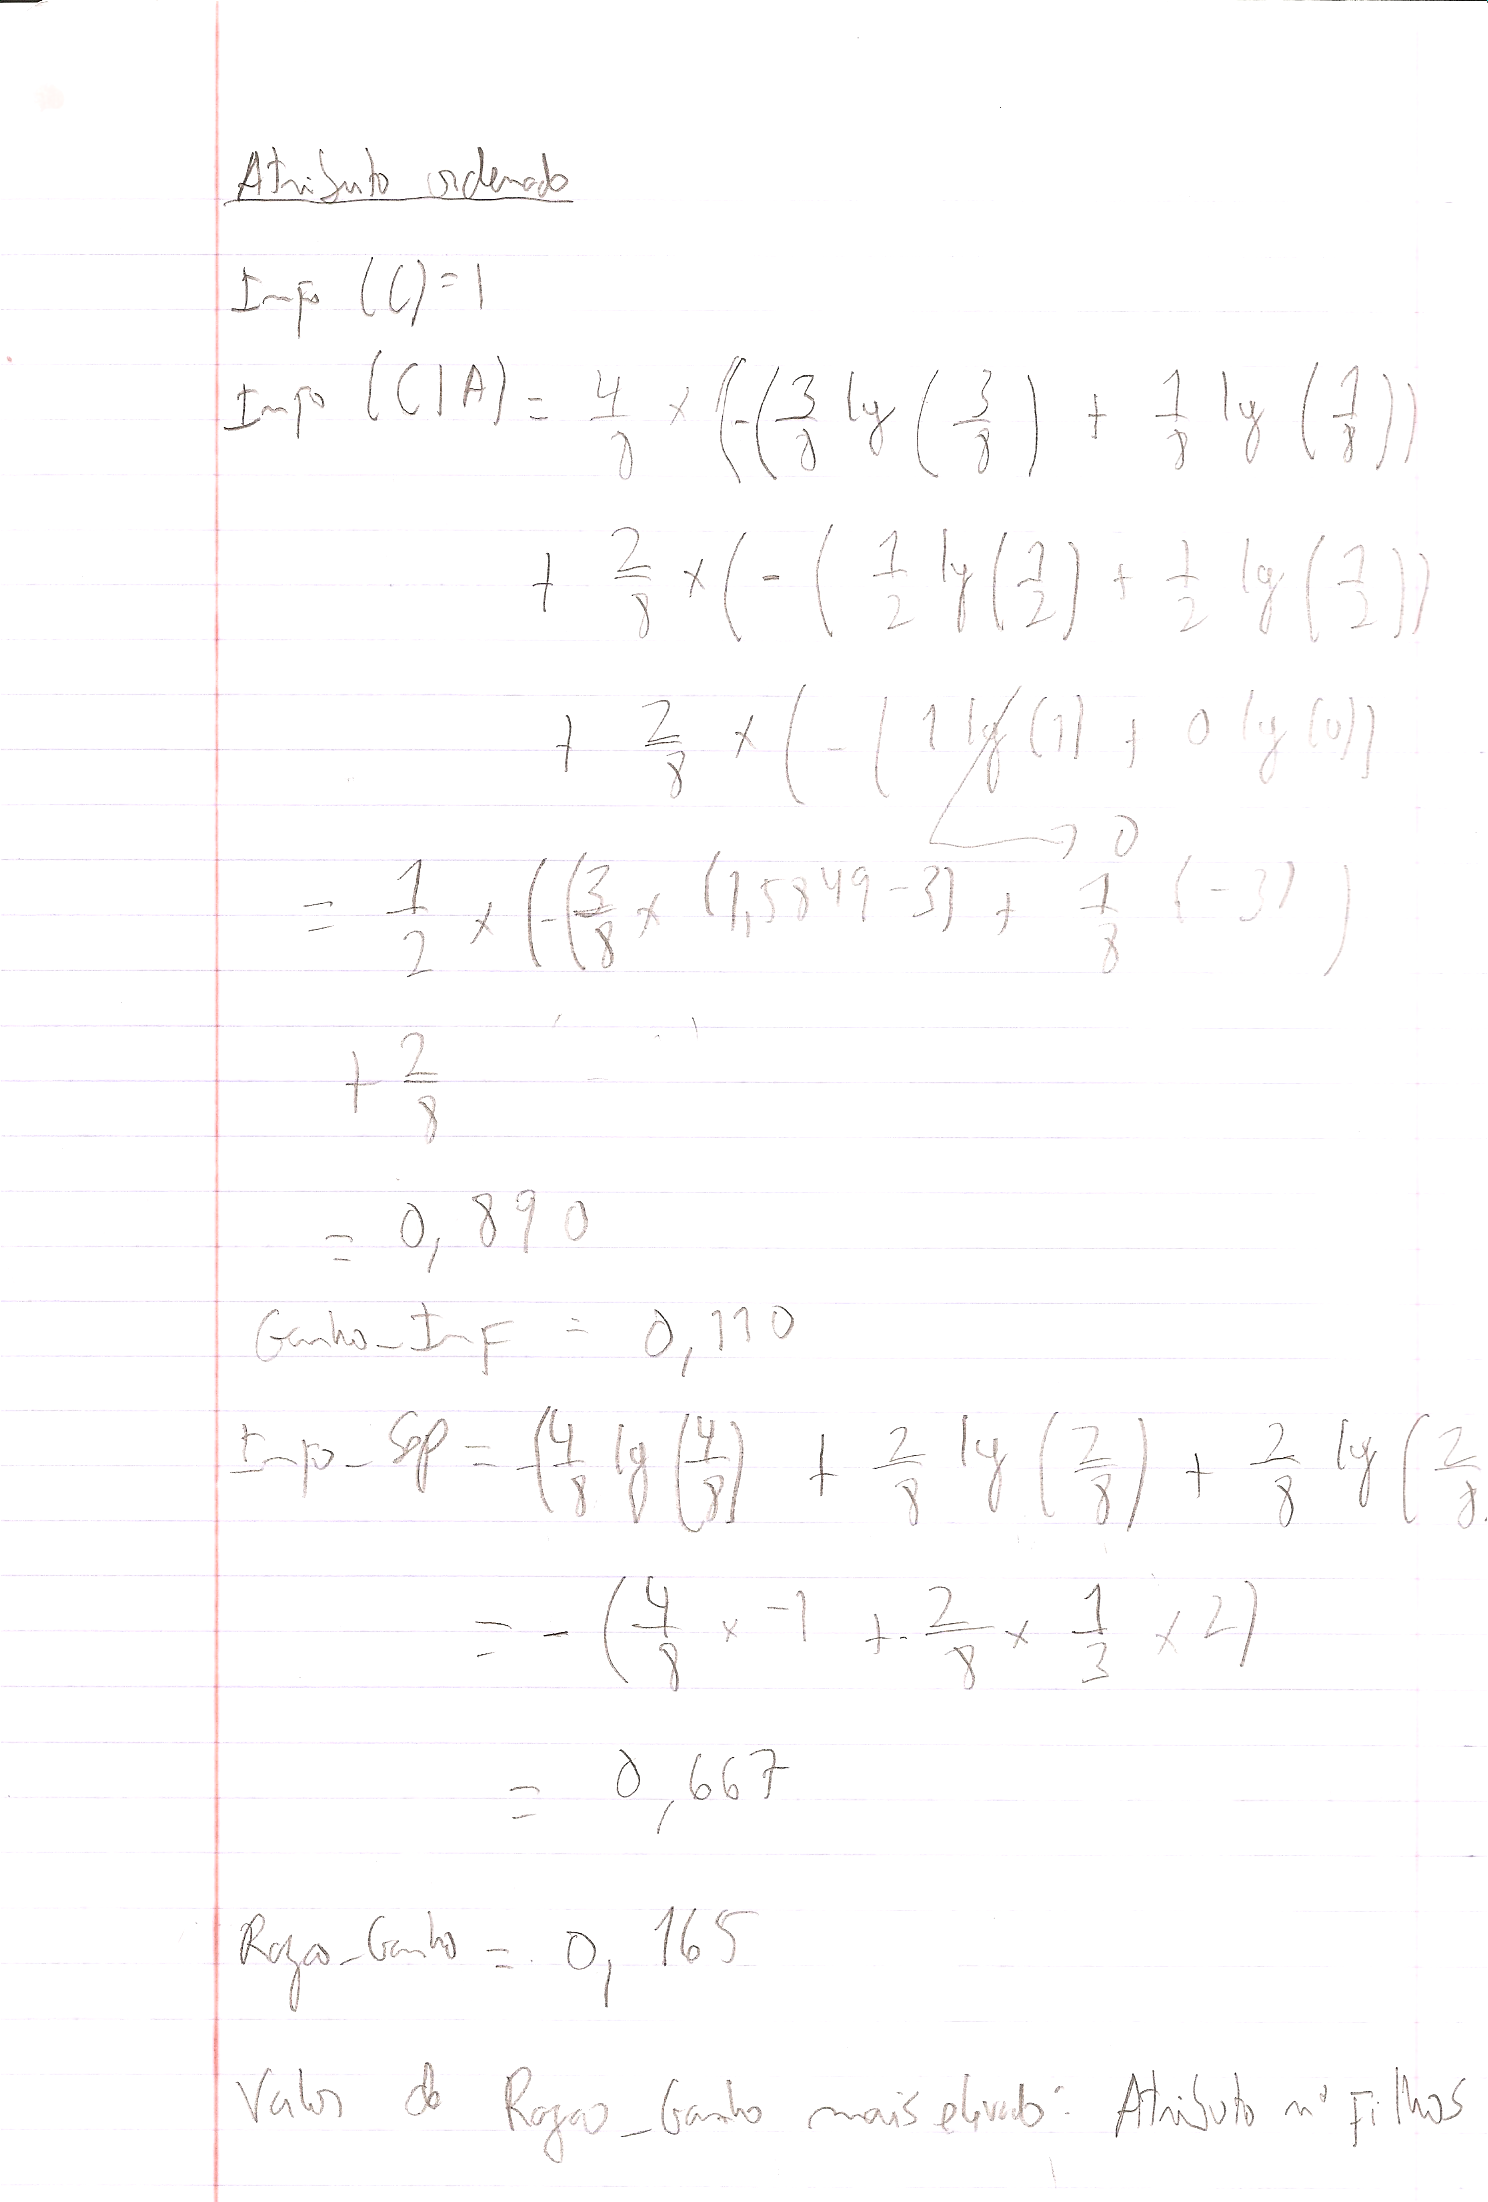 Atributo ordenado
Info (C) = 1
Info (C|A) = 4/8 × (-(3/8 lg (3/8) + 1/8 lg (1/8))
+ 2/8 × (- ( 1/2 lg (1/2) + 1/2 lg (1/2))
+ 2/8 × (- ( 1 lg (1) + 0 lg (0))
→ 0
= 1/2 × (-(3/8 × (1,5849-3) + 1/8 (-3) )
+ 2/8
= 0,890
Ganho_Inf = 0,110
Info_Sep = -(4/8 lg (4/8) + 2/8 lg (2/8) + 2/8 lg (2/8
= - (4/8 × -1 + - 2/8 × 1/3 × 2)
= 0,667
Razao_Ganho = 0,165
Valor de Razao_Ganho mais elevado: Atributo nº Filhos